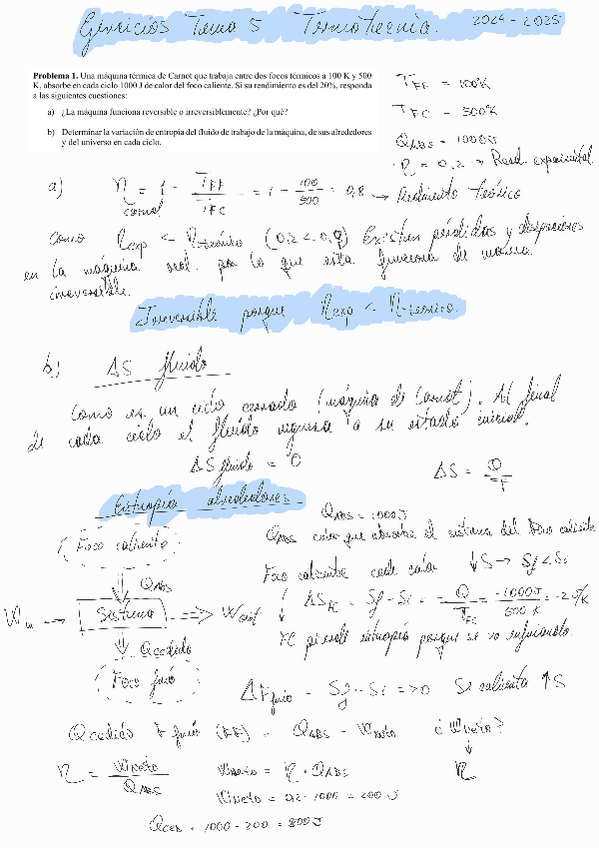 Ejercicios Tema 5 Termotecnia. 2024-2025
Problema 1. Una máquina térmica de Carnot que trabaja entre dos focos térmicos a 100 K y 500
K, absorbe en cada ciclo 1000 J de calor del foco caliente. Si su rendimiento es del 20%, responda
a las siguientes cuestiones:
a) ¿La máquina funciona reversible o irreversiblemente? ¿Por qué?
b) Determinar la variación de entropía del fluido de trabajo de la máquina, de sus alrededores
y del universo en cada ciclo.
TFF = 100K
TFC = 500K
QABS = 1000J
η = 0,2 → Rend. experimental
a) η carnot = 1 - TFF/TFC = 1 - 100/500 = 0,8 → Rendimiento teórico
Como ηexp < ηteórico (0,2 < 0,8) Existen pérdidas y disipaciones
en la máquina real. por lo que esta funciona de manera
irreversible.
Irreversible porque ηexp < ηteórico.
b) ΔS fluido
Como es un ciclo cerrado (máquina de Carnot). Al final
de cada ciclo el fluido regresa a su estado inicial.
ΔS fluido = 0
ΔS = Q/TF
Entropía alrededores
QABS = 1000J
Foco caliente
QABS calor que absorbe el sistema del foco caliente
QABS
Foco caliente cede calor ↓S → Sf < Si
Win → Sistema ==> Wout
ΔSFC = Sf - Si = - Q/TFC = -1000J/500 K = -2 J/K
Qcedido
FC pierde entropía porque se va enfriando.
Foco frío
ΔFfrio = Sf - Si => 0 Se calienta ↑S
Qcedido F frío (FF) = QABS - Wneto ¿Wneto?
↓
η
η = Wneto/QABS
Wneto = η · QABS
Wneto = 0,2 · 1000 = 200 J
Qced = 1000 - 200 = 800J